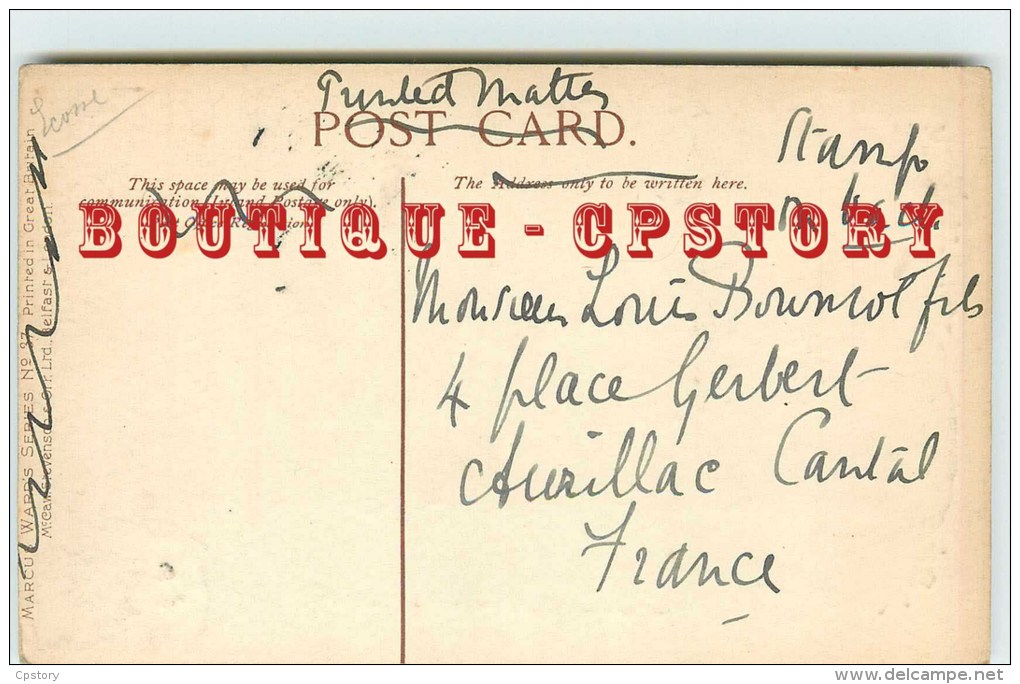 Ecosse
Printed Matter
POST CARD.
Stamp
This space may be used for
communication (Inland Postage only).
The Address only to be written here.
BOUTIQUE - CPSTORY
Monsieur Louis fils
4 place Gerbert
Aurillac Cantal
France
MARCUS WARD'S SERIES No 37. Printed in Great Britain
McCaw, Stevenson & Orr, Ltd., Belfast & London
Cpstory
delcampe.net